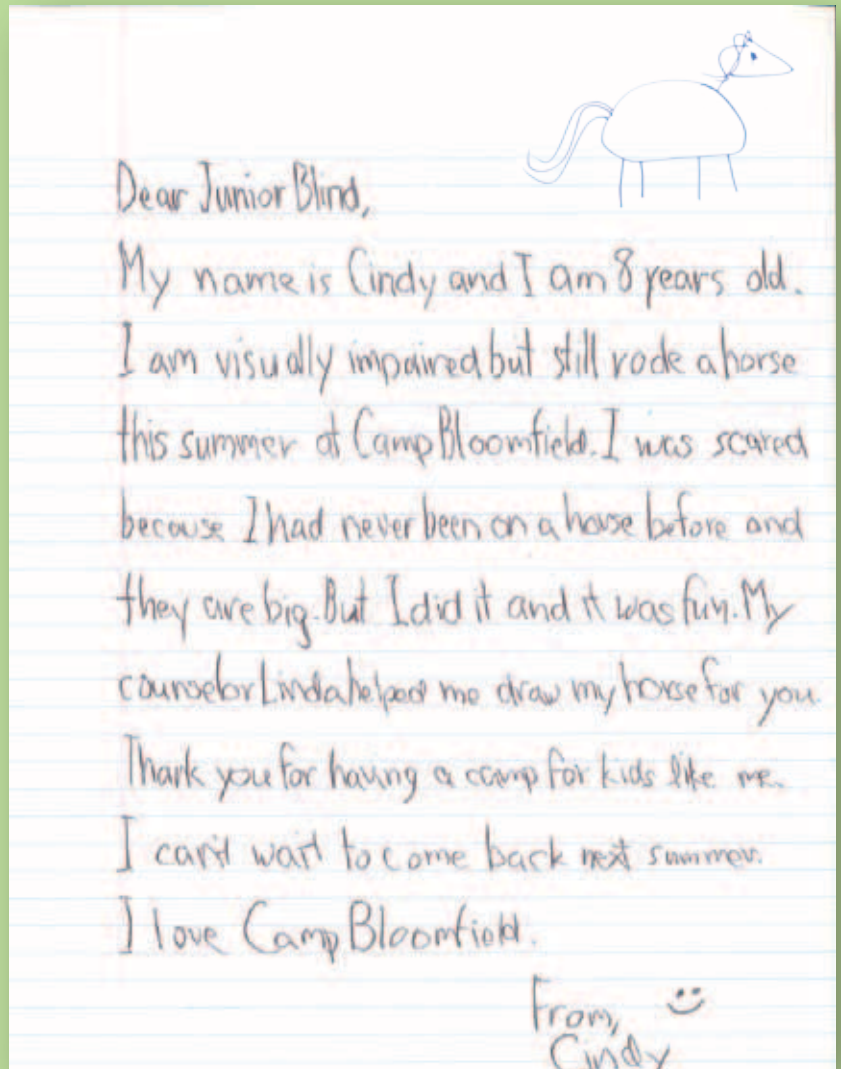 Dear Junior Blind,
My name is Cindy and I am 8 years old.
I am visually impaired but still rode a horse
this summer at Camp Bloomfield. I was scared
because I had never been on a horse before and
they are big. But I did it and it was fun. My
counselor Linda helped me draw my horse for you.
Thank you for having a camp for kids like me.
I can't wait to come back next summer.
I love Camp Bloomfield.
From,
Cindy